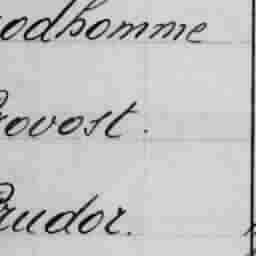 odhomme
rovost.
Prudor.